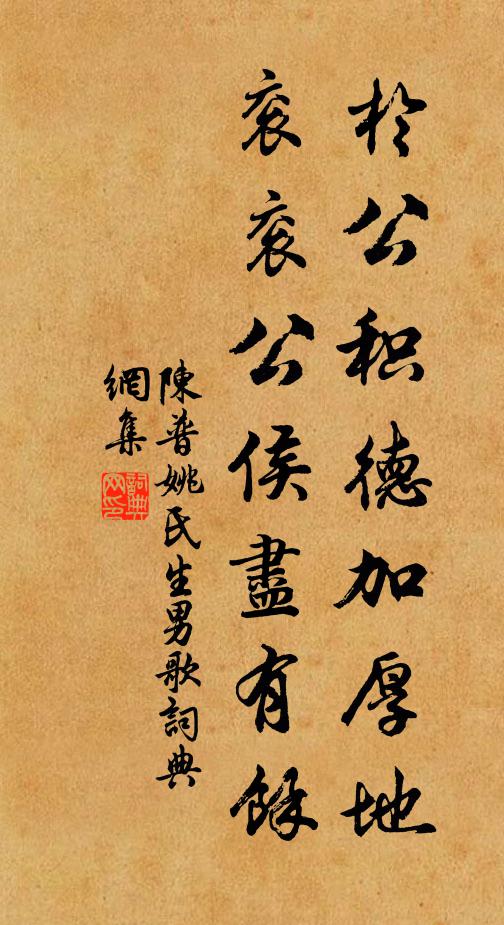 於公积德加厚地
衮衮公侯盡有餘
陳普姚氏生男歌詞典
網集
詞典网印